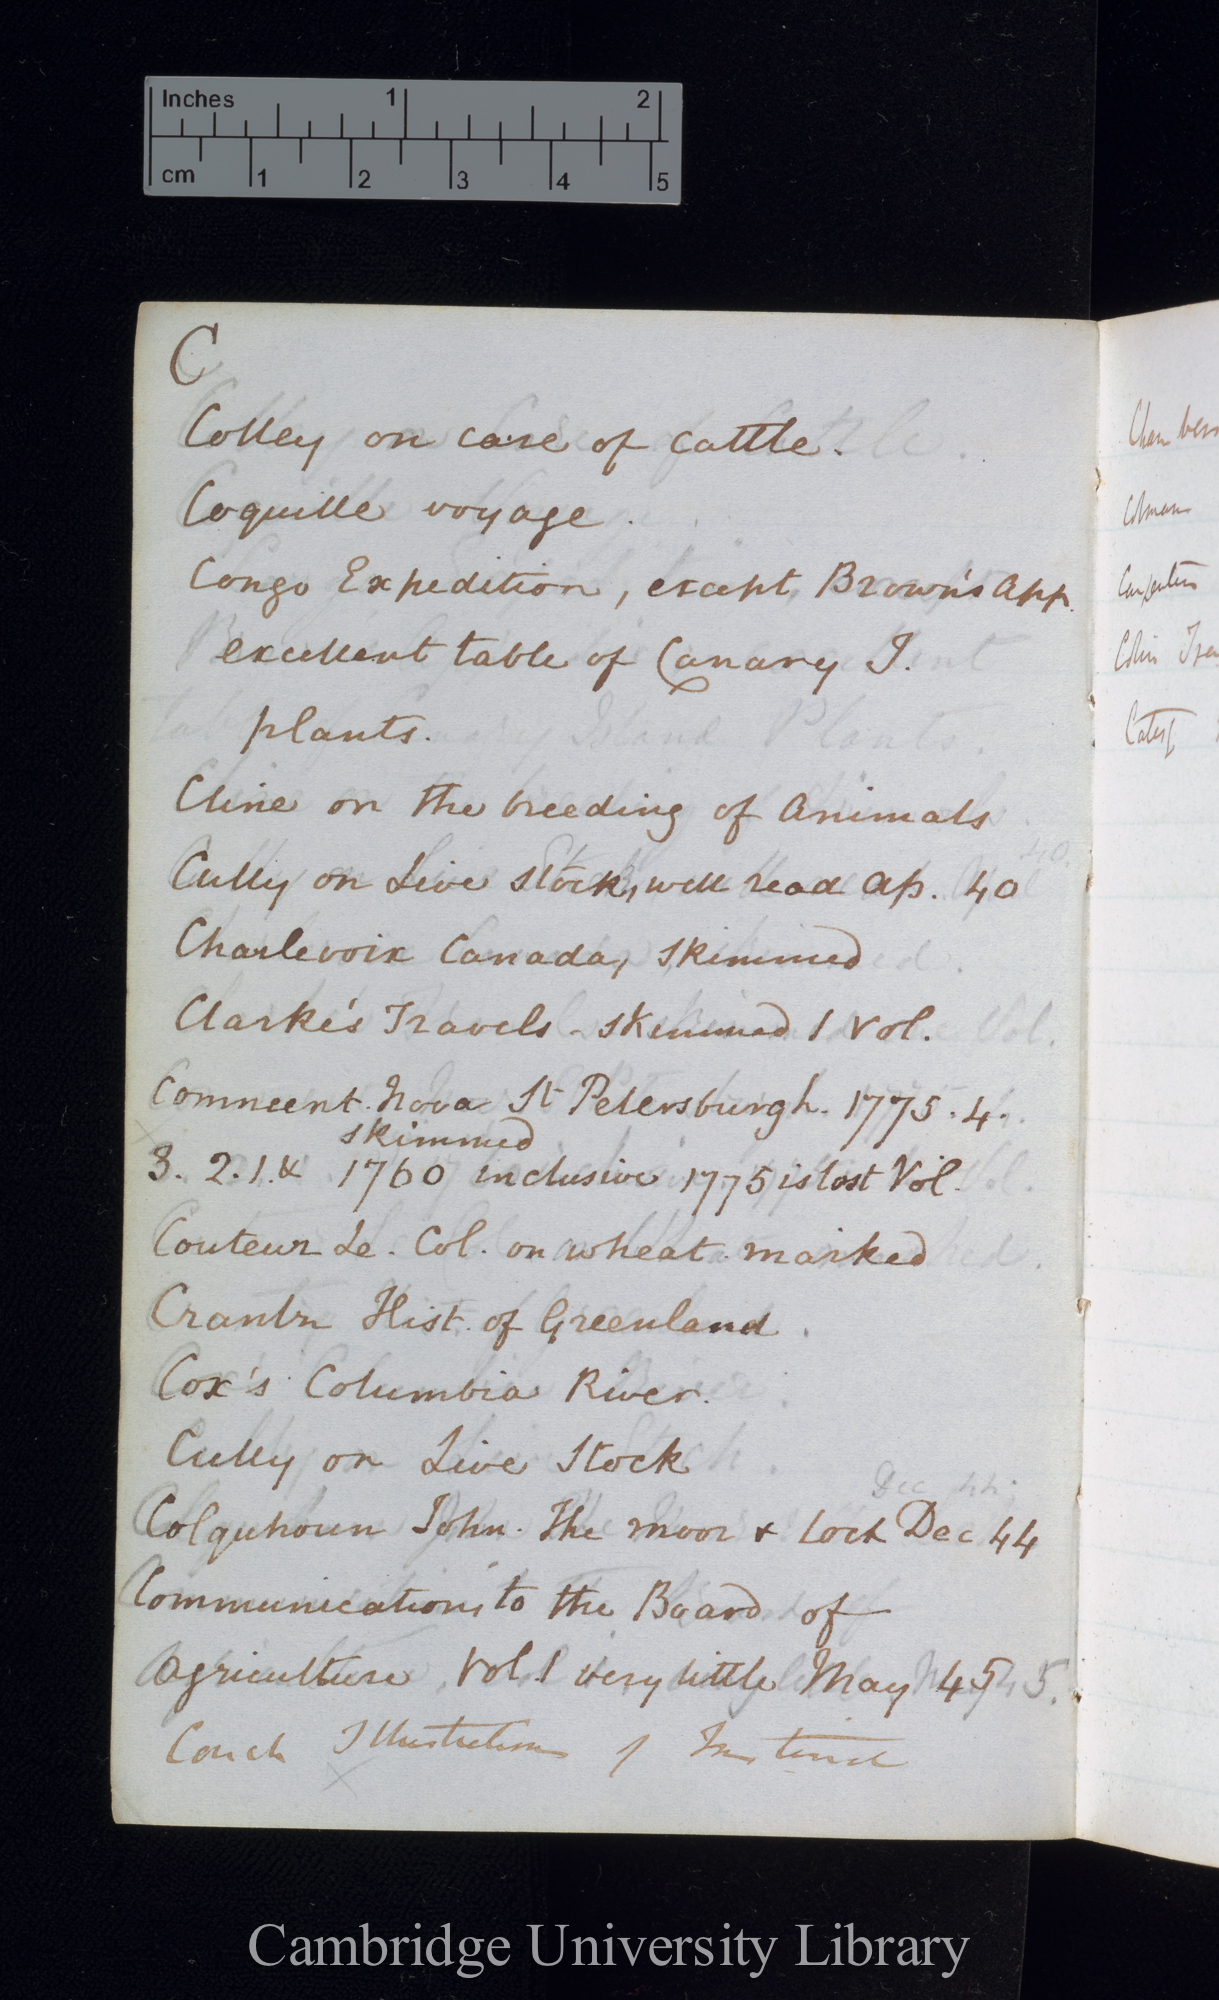 Inches 1 2
cm 1 2 3 4 5
C
Colley on care of cattle.
Coquille voyage.
Congo Expedition, except Brown's App.
excellent table of Canary I.
plants.
Cline on the breeding of Animals
Cully on Live Stock, well read Ap. 40
Charlevoix Canada, skimmed
Clarke's Travels - skimmed 1 vol.
Comment. Nova St Petersburgh. 1775. 4.
skimmed
3. 2. 1. & 1760 inclusive 1775 is last Vol.
Couteur Le. Col. on wheat. marked
Crantz Hist. of Greenland.
Cox's Columbia River.
Cully on Live Stock
Dec 44
Colquhoun John. The Moor & Loch Dec 44
Communications to the Board of
Agriculture. Vol. 1 very little May 45
Couch Illustrations of Instinct
Chambers
Colman
Carpenter
Colin Tra
Catesb
Cambridge University Library